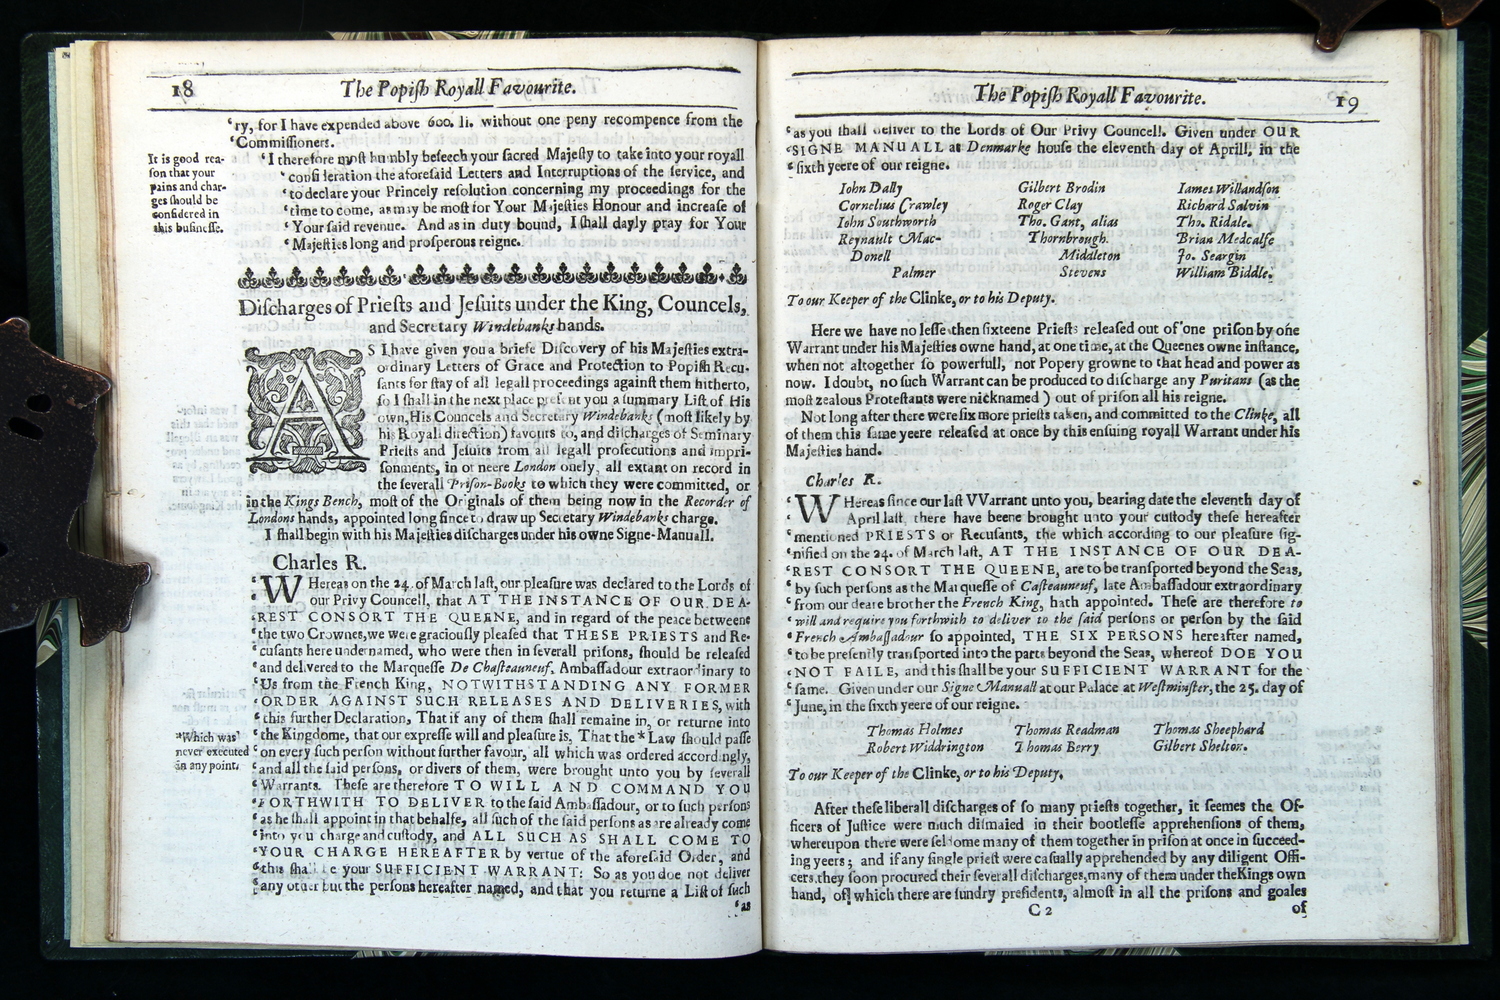 18
The Popiſh Royall Favourite.
‘ry, for I have expended above 600. li. without one peny recompence from the
‘Commiſſioners.
It is good rea-
ſon that your
pains and char-
ges ſhould be
conſidered in
this buſineſſe.
‘I therefore moſt humbly beſeech your ſacred Majeſty to take into your royall
‘conſideration the aforeſaid Letters and Interruptions of the ſervice, and
‘to declare your Princely reſolution concerning my proceedings for the
‘time to come, as may be moſt for Your Majeſties Honour and increaſe of
‘Your ſaid revenue. And as in duty bound, I ſhall dayly pray for Your
‘Majeſties long and proſperous reigne.
Diſcharges of Prieſts and Jeſuits under the King, Councels,
and Secretary Windebanks hands.
AS I have given you a briefe Diſcovery of his Majeſties extra-
ordinary Letters of Grace and Protection to Popiſh Recu-
ſants for ſtay of all legall proceedings againſt them hitherto,
ſo I ſhall in the next place preſent you a ſummary Liſt of His
own, His Councels and Secretary Windebanks (moſt likely by
his Royall direction) favours to, and diſcharges of Seminary
Prieſts and Jeſuits from all legall proſecutions and impri-
ſonments, in or neere London onely, all extant on record in
the ſeverall Priſon-Books to which they were committed, or
in the Kings Bench, moſt of the Originals of them being now in the Recorder of
Londons hands, appointed long ſince to draw up Secretary Windebanks charge.
I ſhall begin with his Majeſties diſcharges under his owne Signe-Manuall.
Charles R.
‘WHereas on the 24. of March laſt, our pleaſure was declared to the Lords of
‘our Privy Councell, that AT THE INSTANCE OF OUR DEA-
‘REST CONSORT THE QUEENE, and in regard of the peace betweene
‘the two Crownes, we were graciouſly pleaſed that THESE PRIESTS and Re-
‘cuſants here undernamed, who were then in ſeverall priſons, ſhould be releaſed
‘and delivered to the Marqueſſe De Chaſteauneuf, Ambaſſadour extraordinary to
‘Us from the French King, NOTWITHSTANDING ANY FORMER
‘ORDER AGAINST SUCH RELEASES AND DELIVERIES, with
‘this further Declaration, That if any of them ſhall remaine in, or returne into
‘the Kingdome, that our expreſſe will and pleaſure is, That the * Law ſhould paſſe
‘on every ſuch perſon without further favour, all which was ordered accordingly,
‘and all the ſaid perſons, or divers of them, were brought unto you by ſeverall
‘Warrants. Theſe are therefore TO WILL AND COMMAND YOU
‘FORTHWITH TO DELIVER to the ſaid Ambaſſadour, or to ſuch perſons
‘as he ſhall appoint in that behalfe, all ſuch of the ſaid perſons as are already come
‘into your charge and cuſtody, and ALL SUCH AS SHALL COME TO
‘YOUR CHARGE HEREAFTER by vertue of the aforeſaid Order, and
‘this ſhall be your SUFFICIENT WARRANT: So as you doe not deliver
‘any other but the perſons hereafter named, and that you returne a Liſt of ſuch
*Which was
never executed
in any point.
‘as
The Popiſh Royall Favourite.
19
‘as you ſhall deliver to the Lords of Our Privy Councell. Given under OUR
‘SIGNE MANUALL at Denmarke houſe the eleventh day of Aprill, in the
‘ſixth yeere of our reigne.
Iohn Dally Gilbert Brodin Iames Willandſon
Cornelius Crawley Roger Clay Richard Salvin
Iohn Southworth Tho. Gant, alias Tho. Ridale.
Reynault Mac- Thornbrough. Brian Medcalfe
Donell Middleton Jo. Seargin
Palmer Stevens William Biddle.
To our Keeper of the Clinke, or to his Deputy.
Here we have no leſſe then ſixteene Prieſts releaſed out of one priſon by one
Warrant under his Majeſties owne hand, at one time, at the Queenes owne inſtance,
when not altogether ſo powerfull, nor Popery growne to that head and power as
now. I doubt, no ſuch Warrant can be produced to diſcharge any Puritans (as the
moſt zealous Proteſtants were nicknamed ) out of priſon all his reigne.
Not long after there were ſix more prieſts taken, and committed to the Clinke, all
of them this ſame yeere releaſed at once by this enſuing royall Warrant under his
Majeſties hand.
Charles R.
‘WHereas ſince our laſt VVarrant unto you, bearing date the eleventh day of
‘April laſt, there have beene brought unto your cuſtody theſe hereafter
‘mentioned PRIESTS or Recuſants, the which according to our pleaſure ſig-
‘nified on the 24. of March laſt, AT THE INSTANCE OF OUR DEA-
‘REST CONSORT THE QUEENE, are to be tranſported beyond the Seas,
‘by ſuch perſons as the Marqueſſe of Caſteauneuf, late Ambaſſadour extraordinary
‘from our deare brother the French King, hath appointed. Theſe are therefore to
‘will and require you forthwith to deliver to the ſaid perſons or perſon by the ſaid
‘French Ambaſſadour ſo appointed, THE SIX PERSONS hereafter named,
‘to be preſently tranſported into the parts beyond the Seas, whereof DOE YOU
‘NOT FAILE, and this ſhall be your SUFFICIENT WARRANT for the
‘ſame. Given under our Signe Manuall at our Palace at Weſtminſter, the 25. day of
‘June, in the ſixth yeere of our reigne.
Thomas Holmes Thomas Readman Thomas Sheephard
Robert Widdrington Thomas Berry Gilbert Shelton.
To our Keeper of the Clinke, or to his Deputy.
After theſe liberall diſcharges of ſo many prieſts together, it ſeemes the Of-
ficers of Juſtice were much diſmaied in their bootleſſe apprehenſions of them,
whereupon there were ſeldome many of them together in priſon at once in ſucceed-
ing yeers; and if any ſingle prieſt were caſually apprehended by any diligent Offi-
cers, they ſoon procured their ſeverall diſcharges, many of them under the Kings own
hand, of which there are ſundry preſidents, almoſt in all the priſons and goales
C 2
of